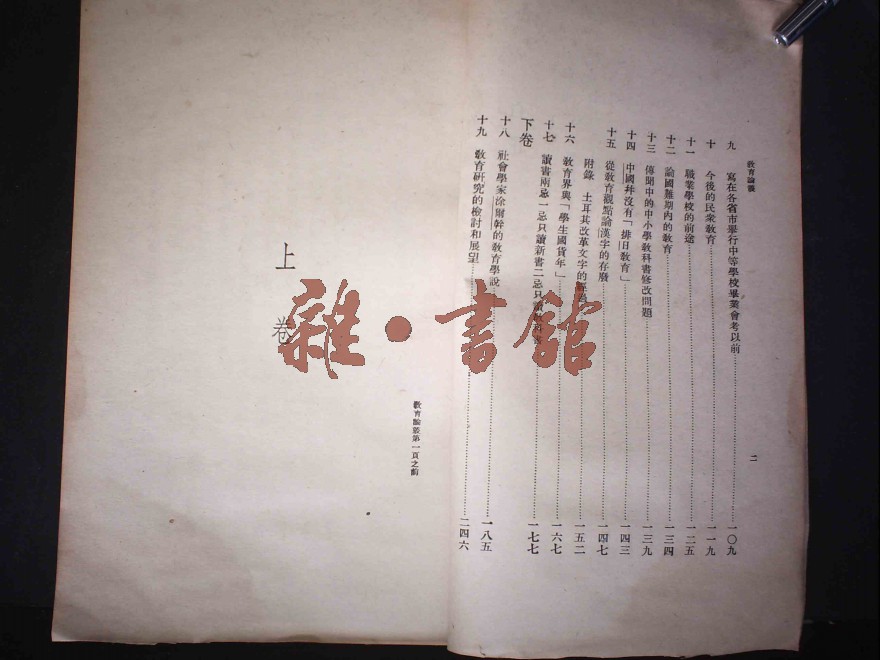 教育論叢
二
九 寫在各省市舉行中等學校畢業會考以前 一〇九
十 今後的民衆教育 一一九
十一 職業學校的前途 一二五
十二 論國難期內的教育 一三四
十三 傳聞中的中小學敎科書修改問題 一三九
十四 中國幷沒有「排日敎育」 一四三
十五 從敎育觀點論漢字的存廢 一四七
附錄 土耳其改革文字的經過 一五二
十六 敎育界與「學生國貨年」 一六七
十七 讀書兩忌一忌只讀新書二忌只讀敎科書 一七七
下卷
十八 社會學家涂爾幹的敎育學說 一八五
十九 敎育硏究的檢討和展望 二四六
敎育論叢第一頁之前
上卷
雜·書館